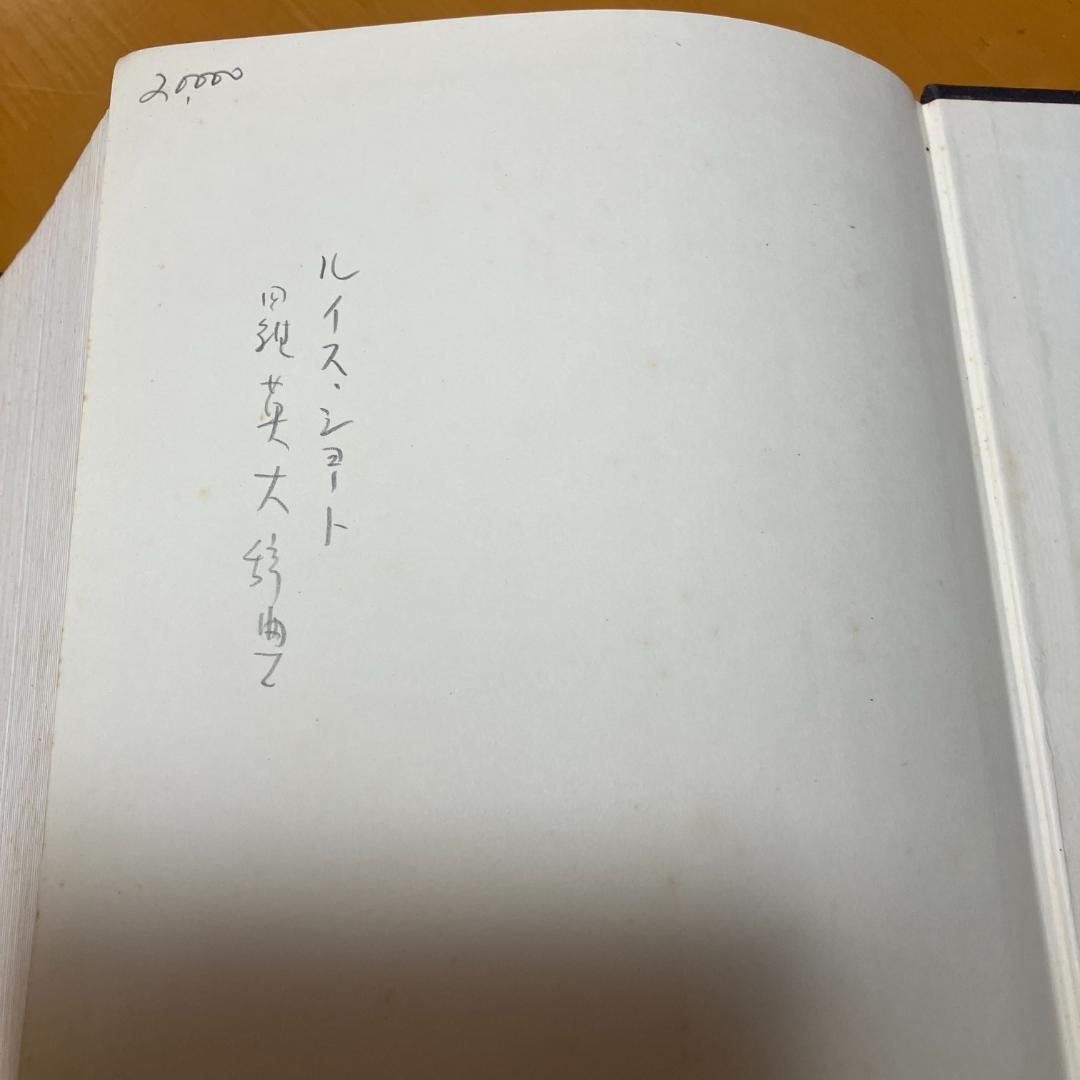 20,000
ルイス・ショート
羅英大辞典